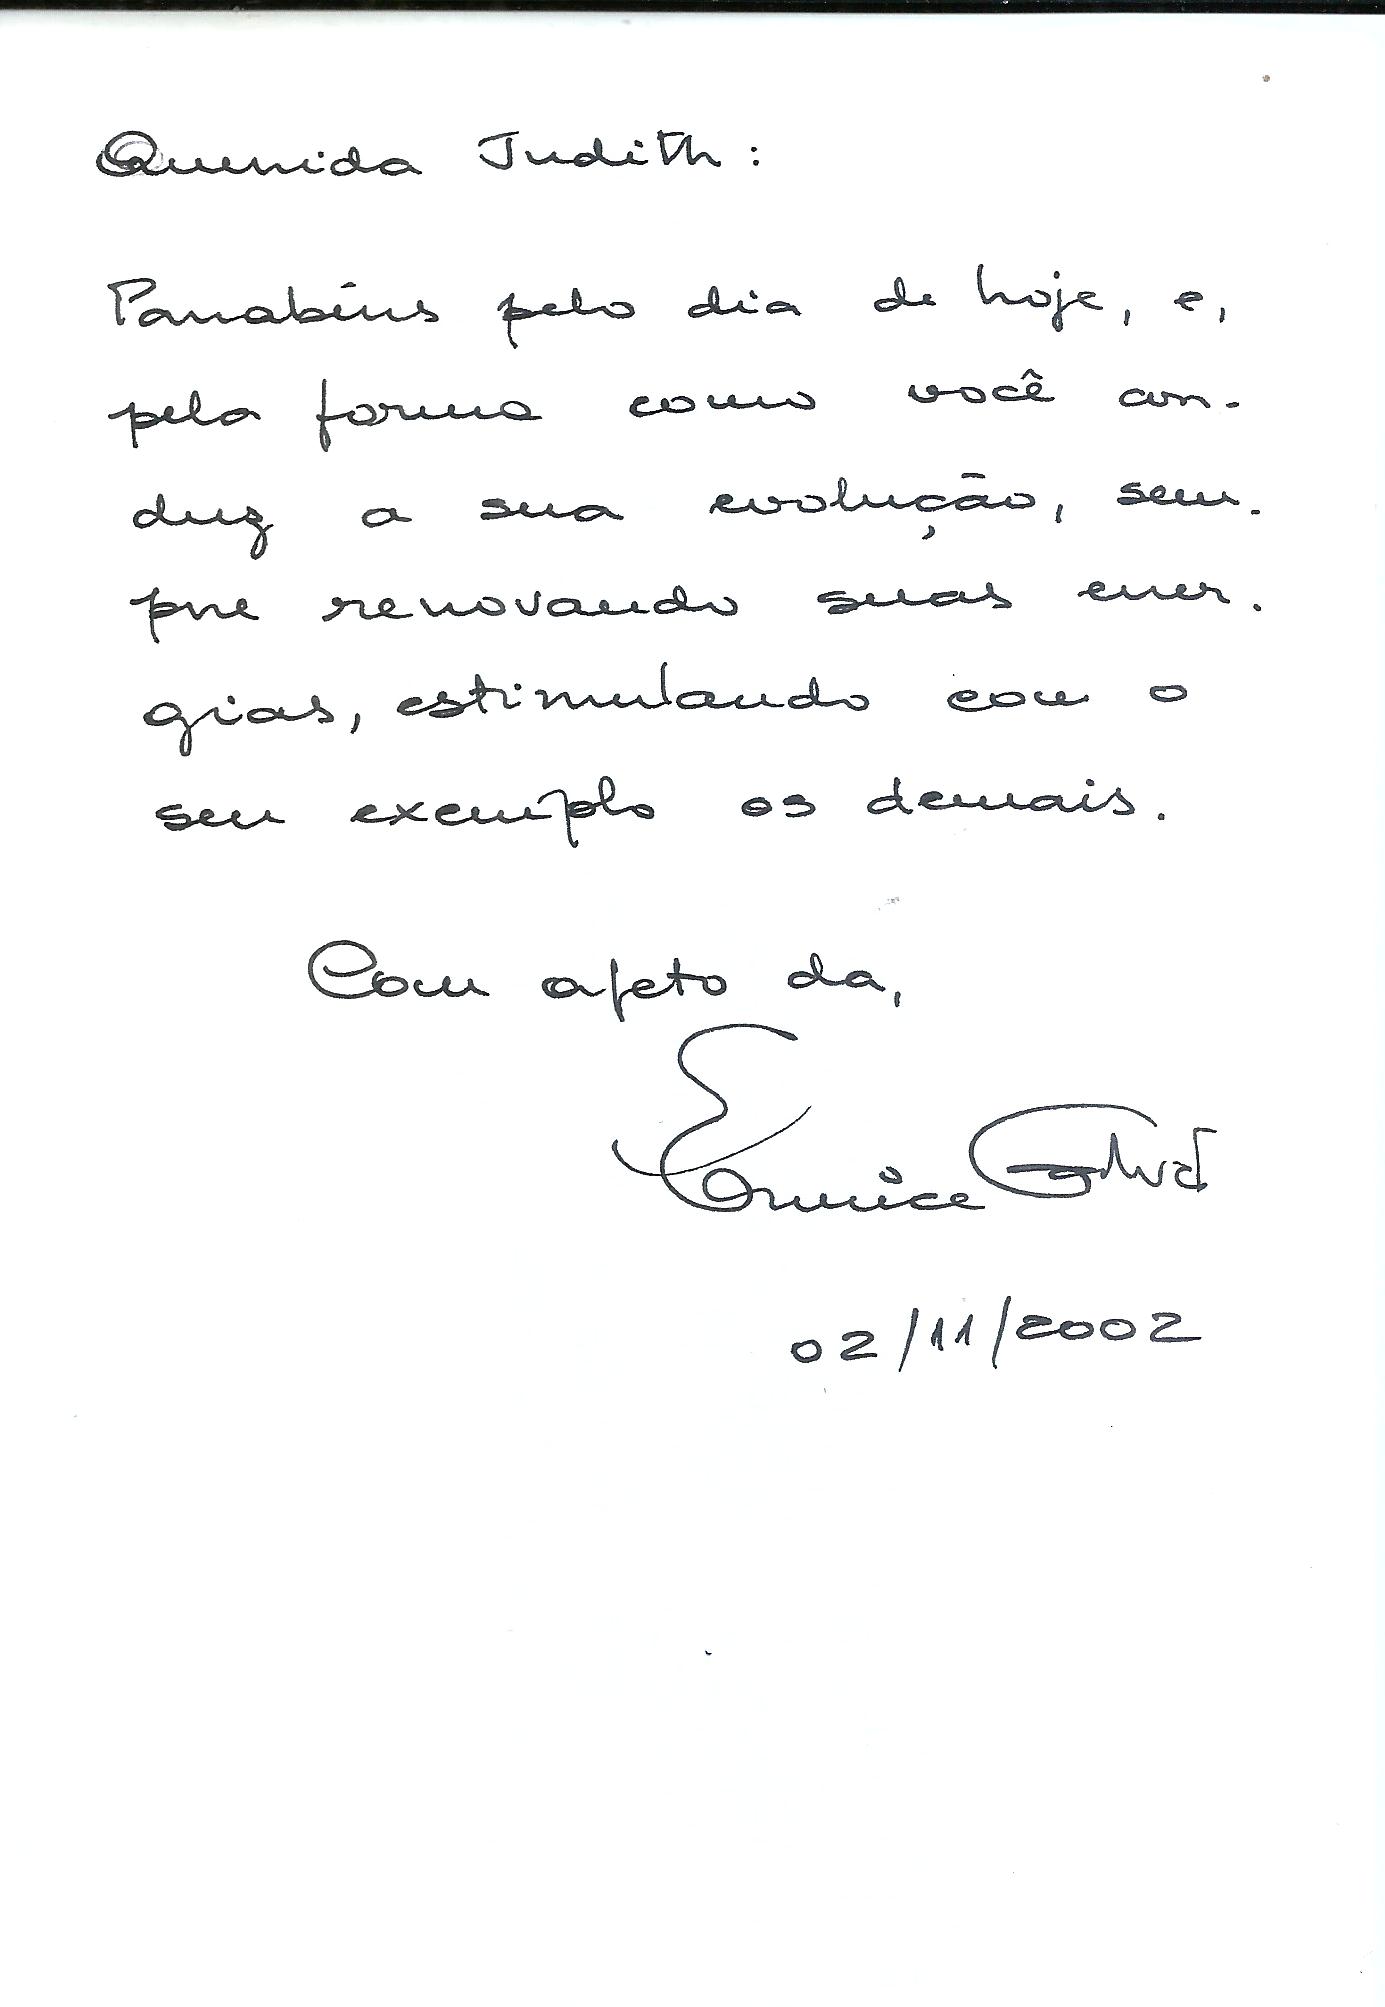 Querida Judith:
Parabéns pelo dia de hoje, e,
pela forma como você con-
duz a sua evolução, sem-
pre renovando suas ener-
gias, estimulando com o
seu exemplo os demais.
Com afeto da,
Eunice
02/11/2002